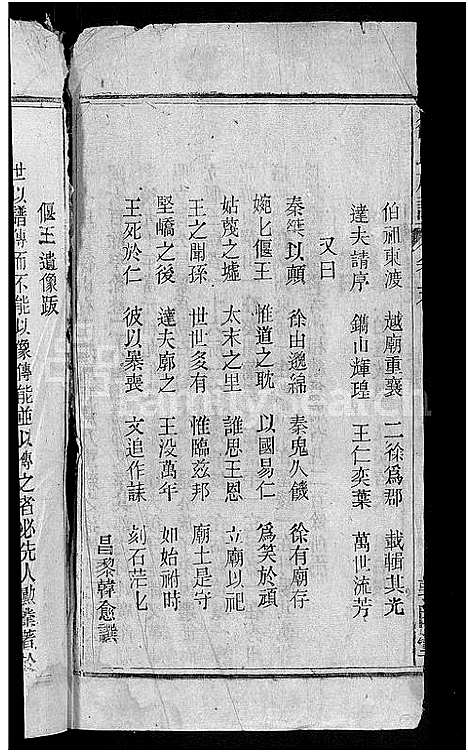 伯祖東渡　越廟重襄　二徐爲郡　載其光
達夫請序　鐫山輝瑝　王仁奕葉　萬世流芳
又曰
秦桀以顛　徐由遜綿　秦鬼久饑　徐有廟存
婉匕偃王　惟道之耽　以國易仁　爲笑於頑
姑蔑之墟　太末之里　誰思王恩　立廟以祀
王之聞孫　世世多有　惟臨茲邦　廟土是守
堅嶠之後　達夫廓之　王没萬年　如始祔時
王死於仁　彼以暴喪　文追作誄　刻石茫匕
昌黎韓愈譔
偃王遺像跋
世以譜傳而不能以像傳能並以傳之者必先人勳業著於
FamilySearch